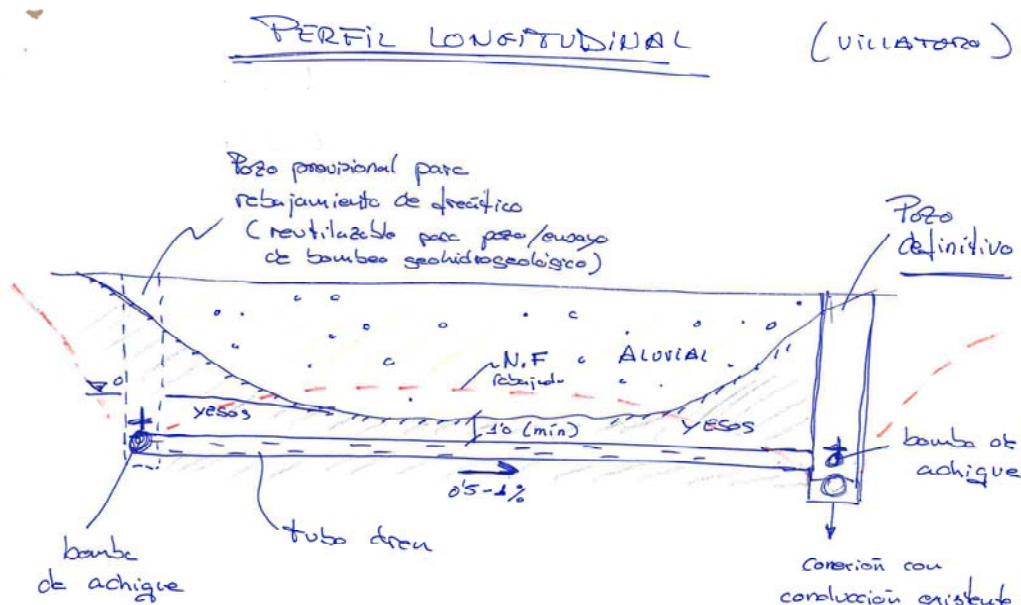 PERFIL LONGITUDINAL
(VILLATORO)
Pozo provisional para
rebajamiento de freático
(reutilizable para pozo/ensayo
de bombeo geohidrogeológico)
Pozo
definitivo
N.F
rebajado
ALUVIAL
YESOS
1'0 (mín)
YESOS
bomba de
achique
0'5-1%
tubo dren
bomba
de achique
conexión con
conducción existente